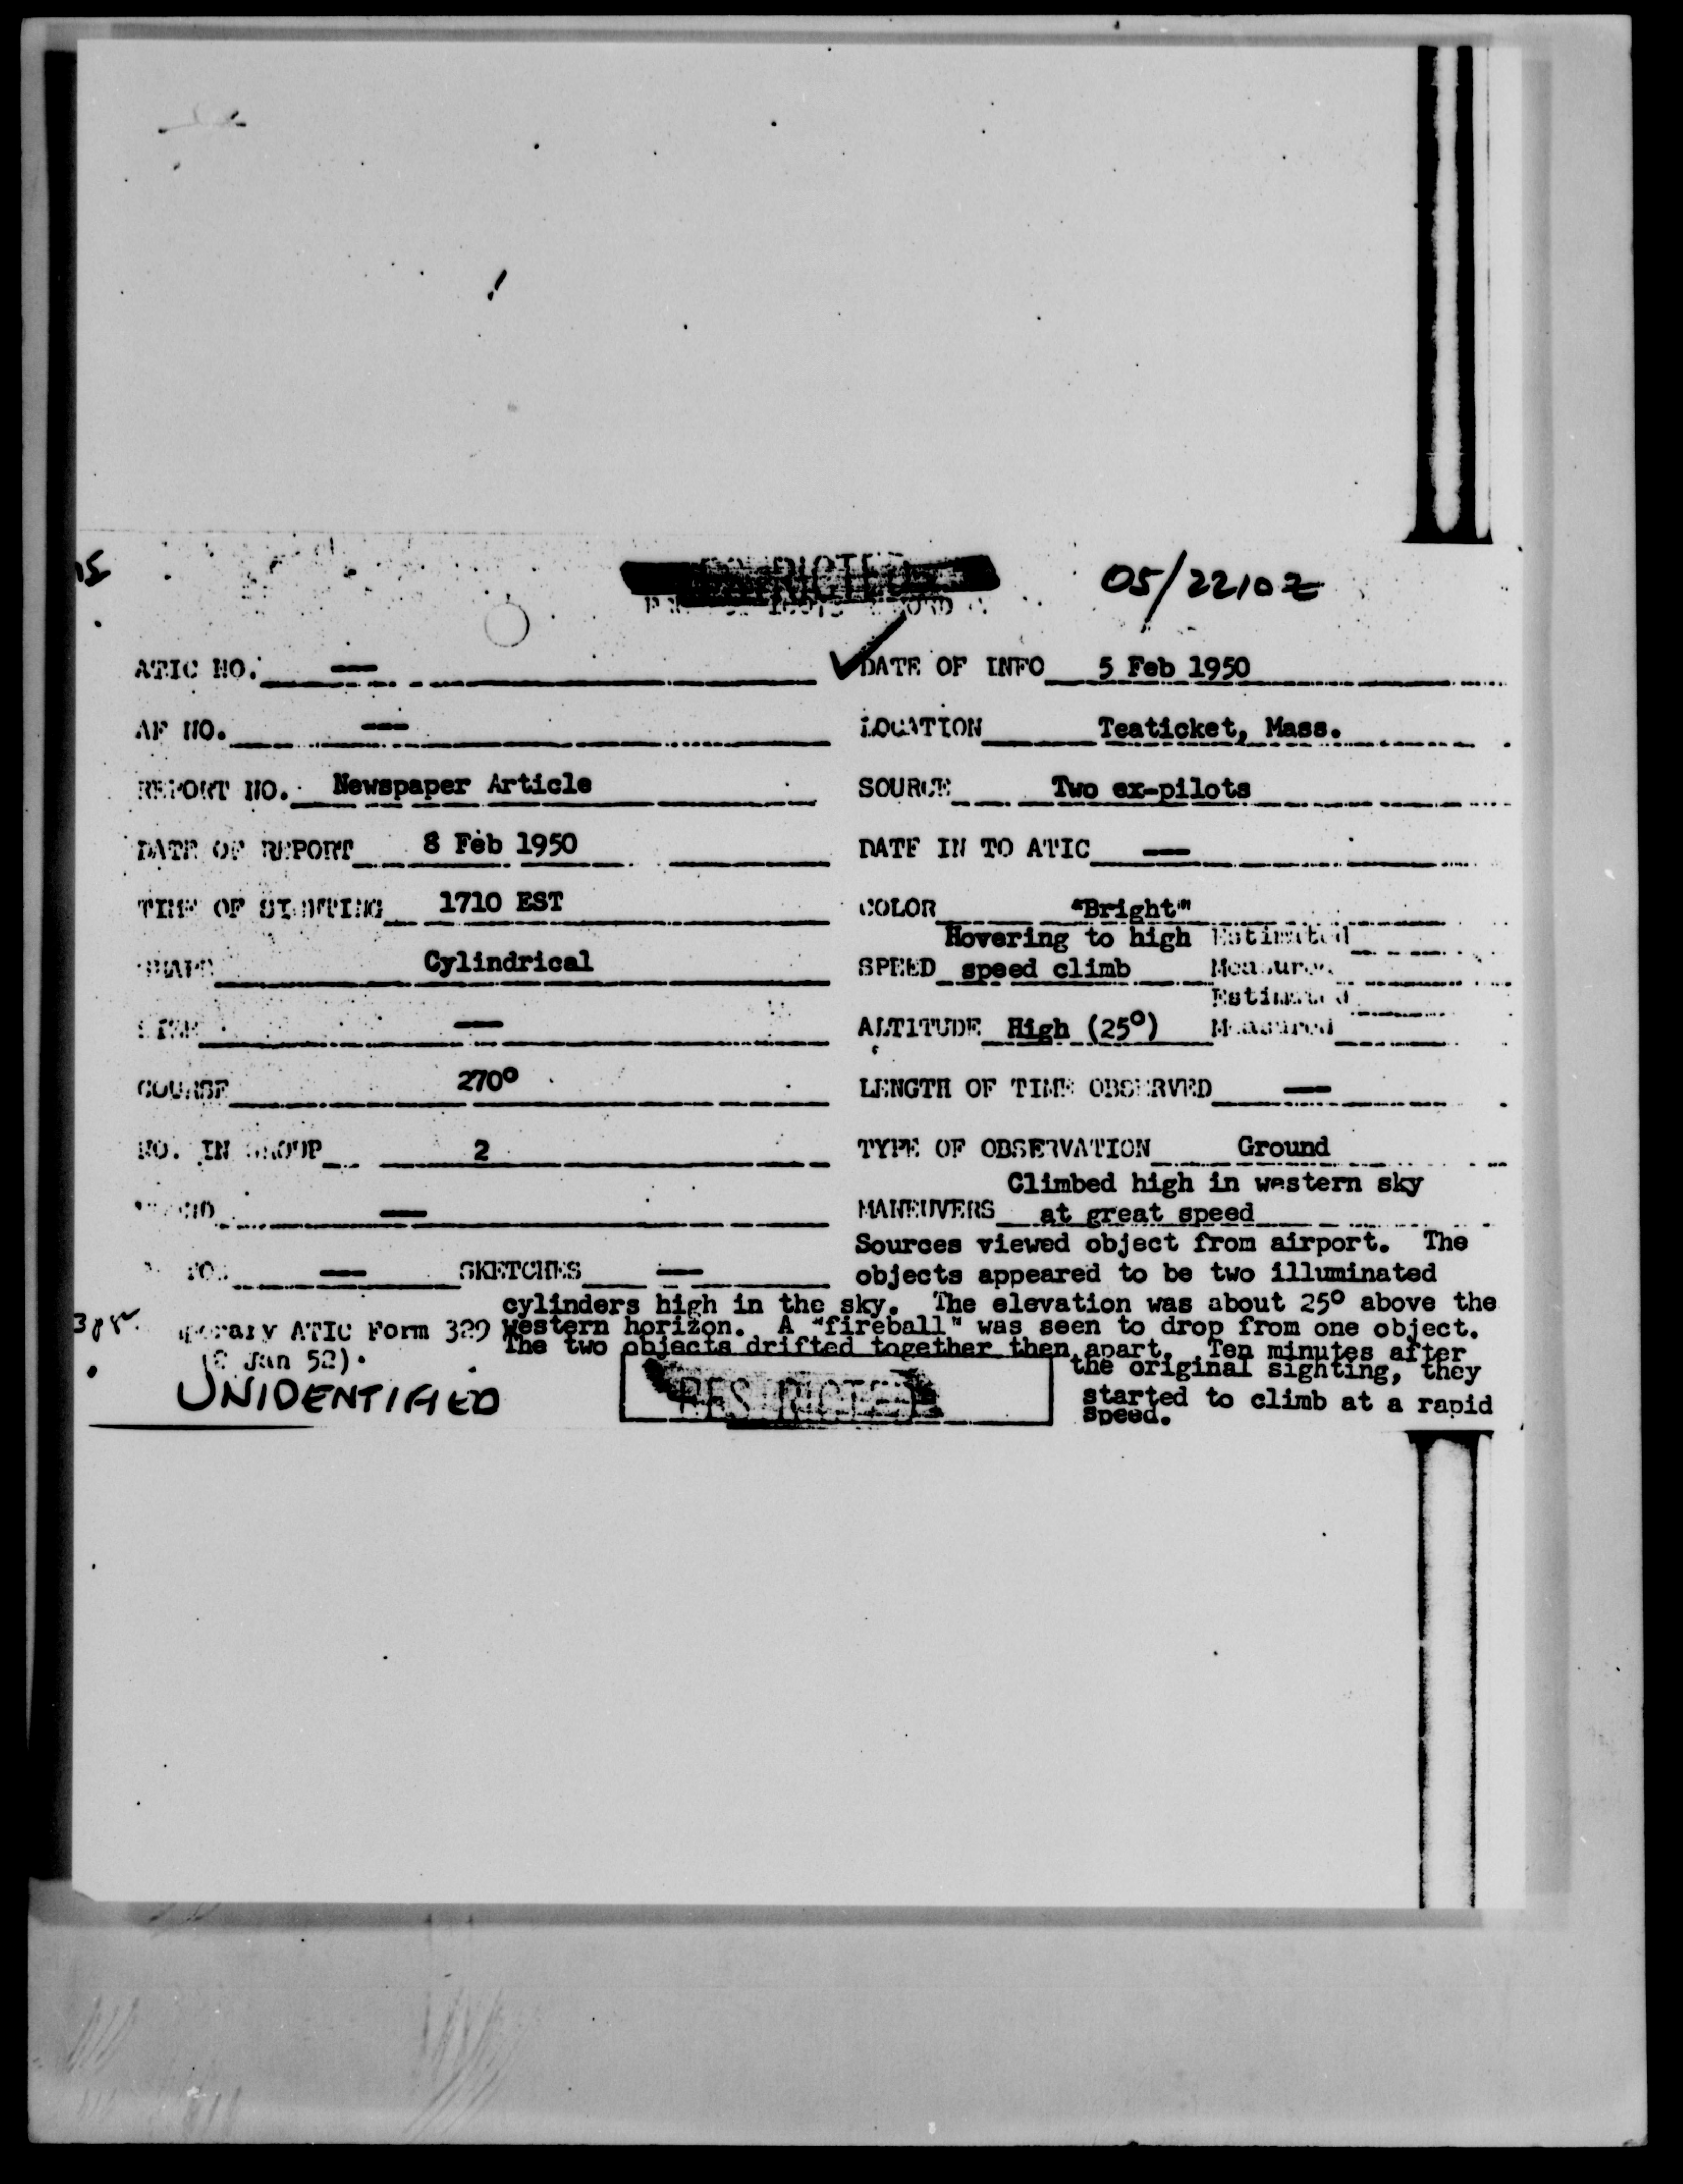 05/2210Z
ATIC NO. —
DATE OF INFO 5 Feb 1950
AF NO. —
LOCATION Teaticket, Mass.
REPORT NO. Newspaper Article
SOURCE Two ex-pilots
DATE OF REPORT 8 Feb 1950
DATE IN TO ATIC —
TIME OF SIGHTING 1710 EST
COLOR "Bright"
SHAPE Cylindrical
Hovering to high Estimated
SPEED speed climb Measured
Estimated
SIZE —
ALTITUDE High (25°) Measured
COURSE 270°
LENGTH OF TIME OBSERVED —
NO. IN GROUP 2
TYPE OF OBSERVATION Ground
—
Climbed high in western sky
MANEUVERS at great speed
— SKETCHES —
Sources viewed object from airport. The
objects appeared to be two illuminated
cylinders high in the sky. The elevation was about 25° above the
western horizon. A "fireball" was seen to drop from one object.
The two objects drifted together then apart. Ten minutes after
the original sighting, they
started to climb at a rapid
speed.
ATIC Form 329
Jan 52)
UNIDENTIFIED
RESTRICTED